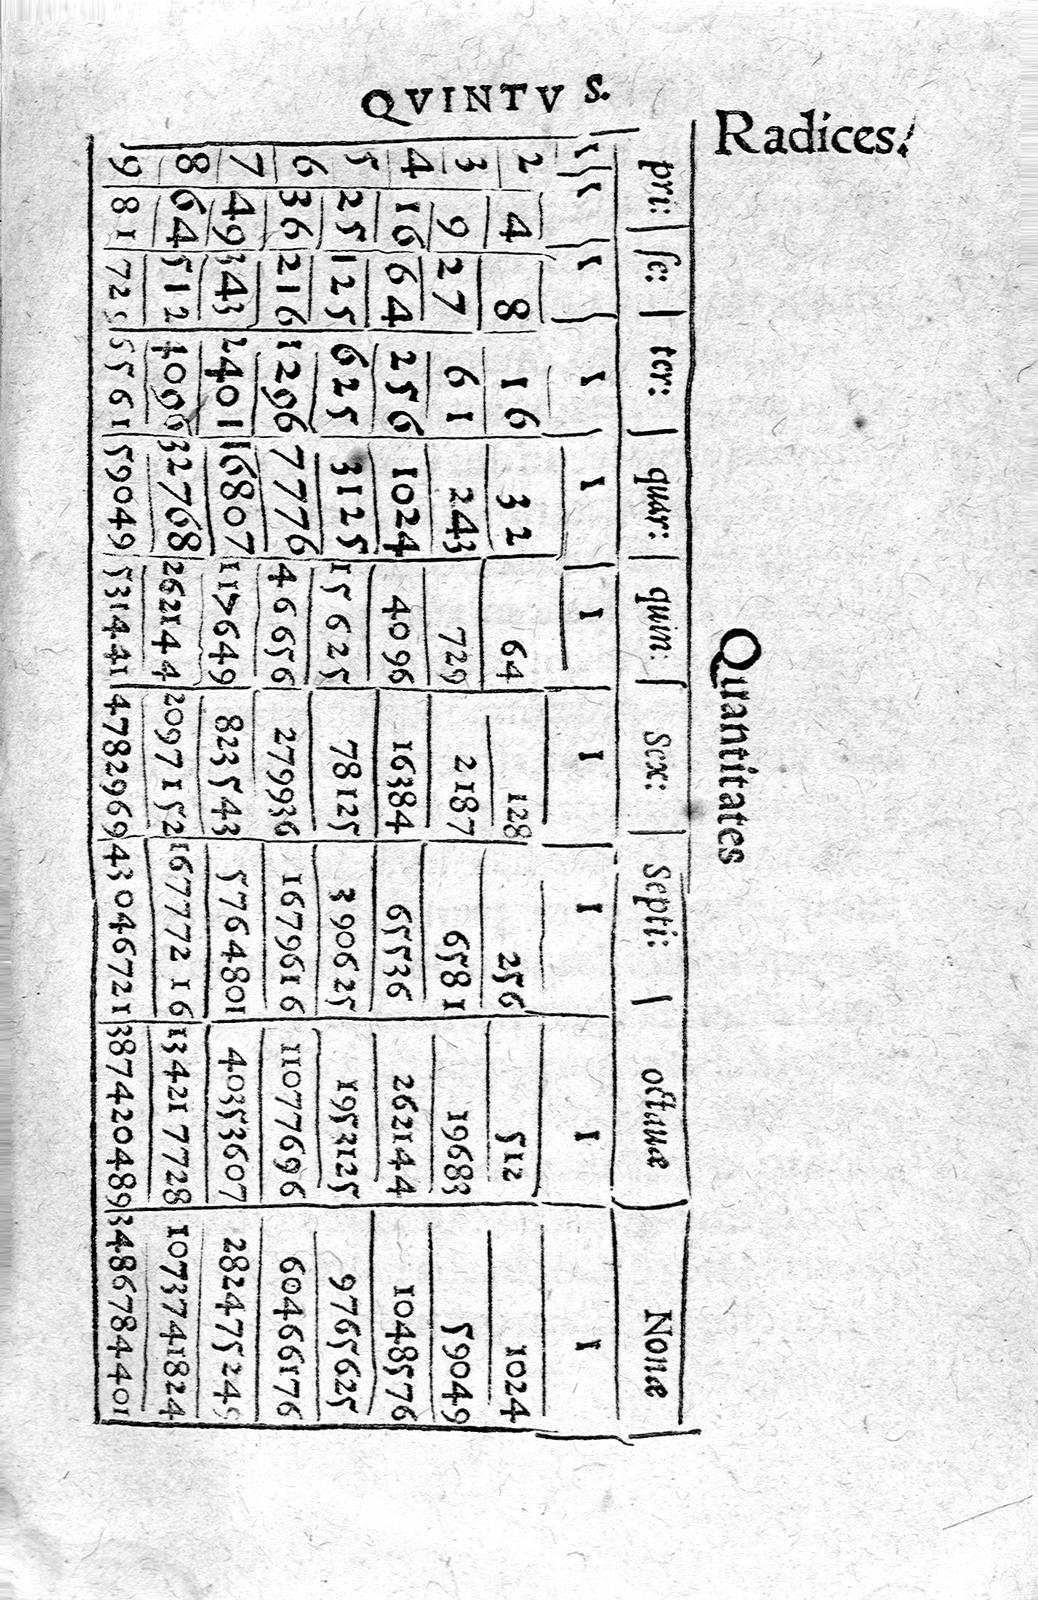 QVINTVS.
Radices.
Quantitates
pri: se: ter: quar: quin: Sex: Septi: octauæ Nonæ
1 1 1 1 1 1 1 1 1 1
2 4 8 16 32 64 128 256 512 1024
3 9 27 61 243 729 2187 6581 19683 59049
4 16 64 256 1024 4096 16384 65536 262144 1048576
5 25 125 625 3125 15625 78125 390625 1953125 9765625
6 36 216 1296 7776 46656 279936 1679616 11077696 60466176
7 49 343 2401 16807 117649 823543 5764801 40353607 282475249
8 64 512 4096 32768 262144 2097152 16777216 134217728 1073741824
9 81 725 5561 59049 531441 4782969 43046721 387420489 3486784401